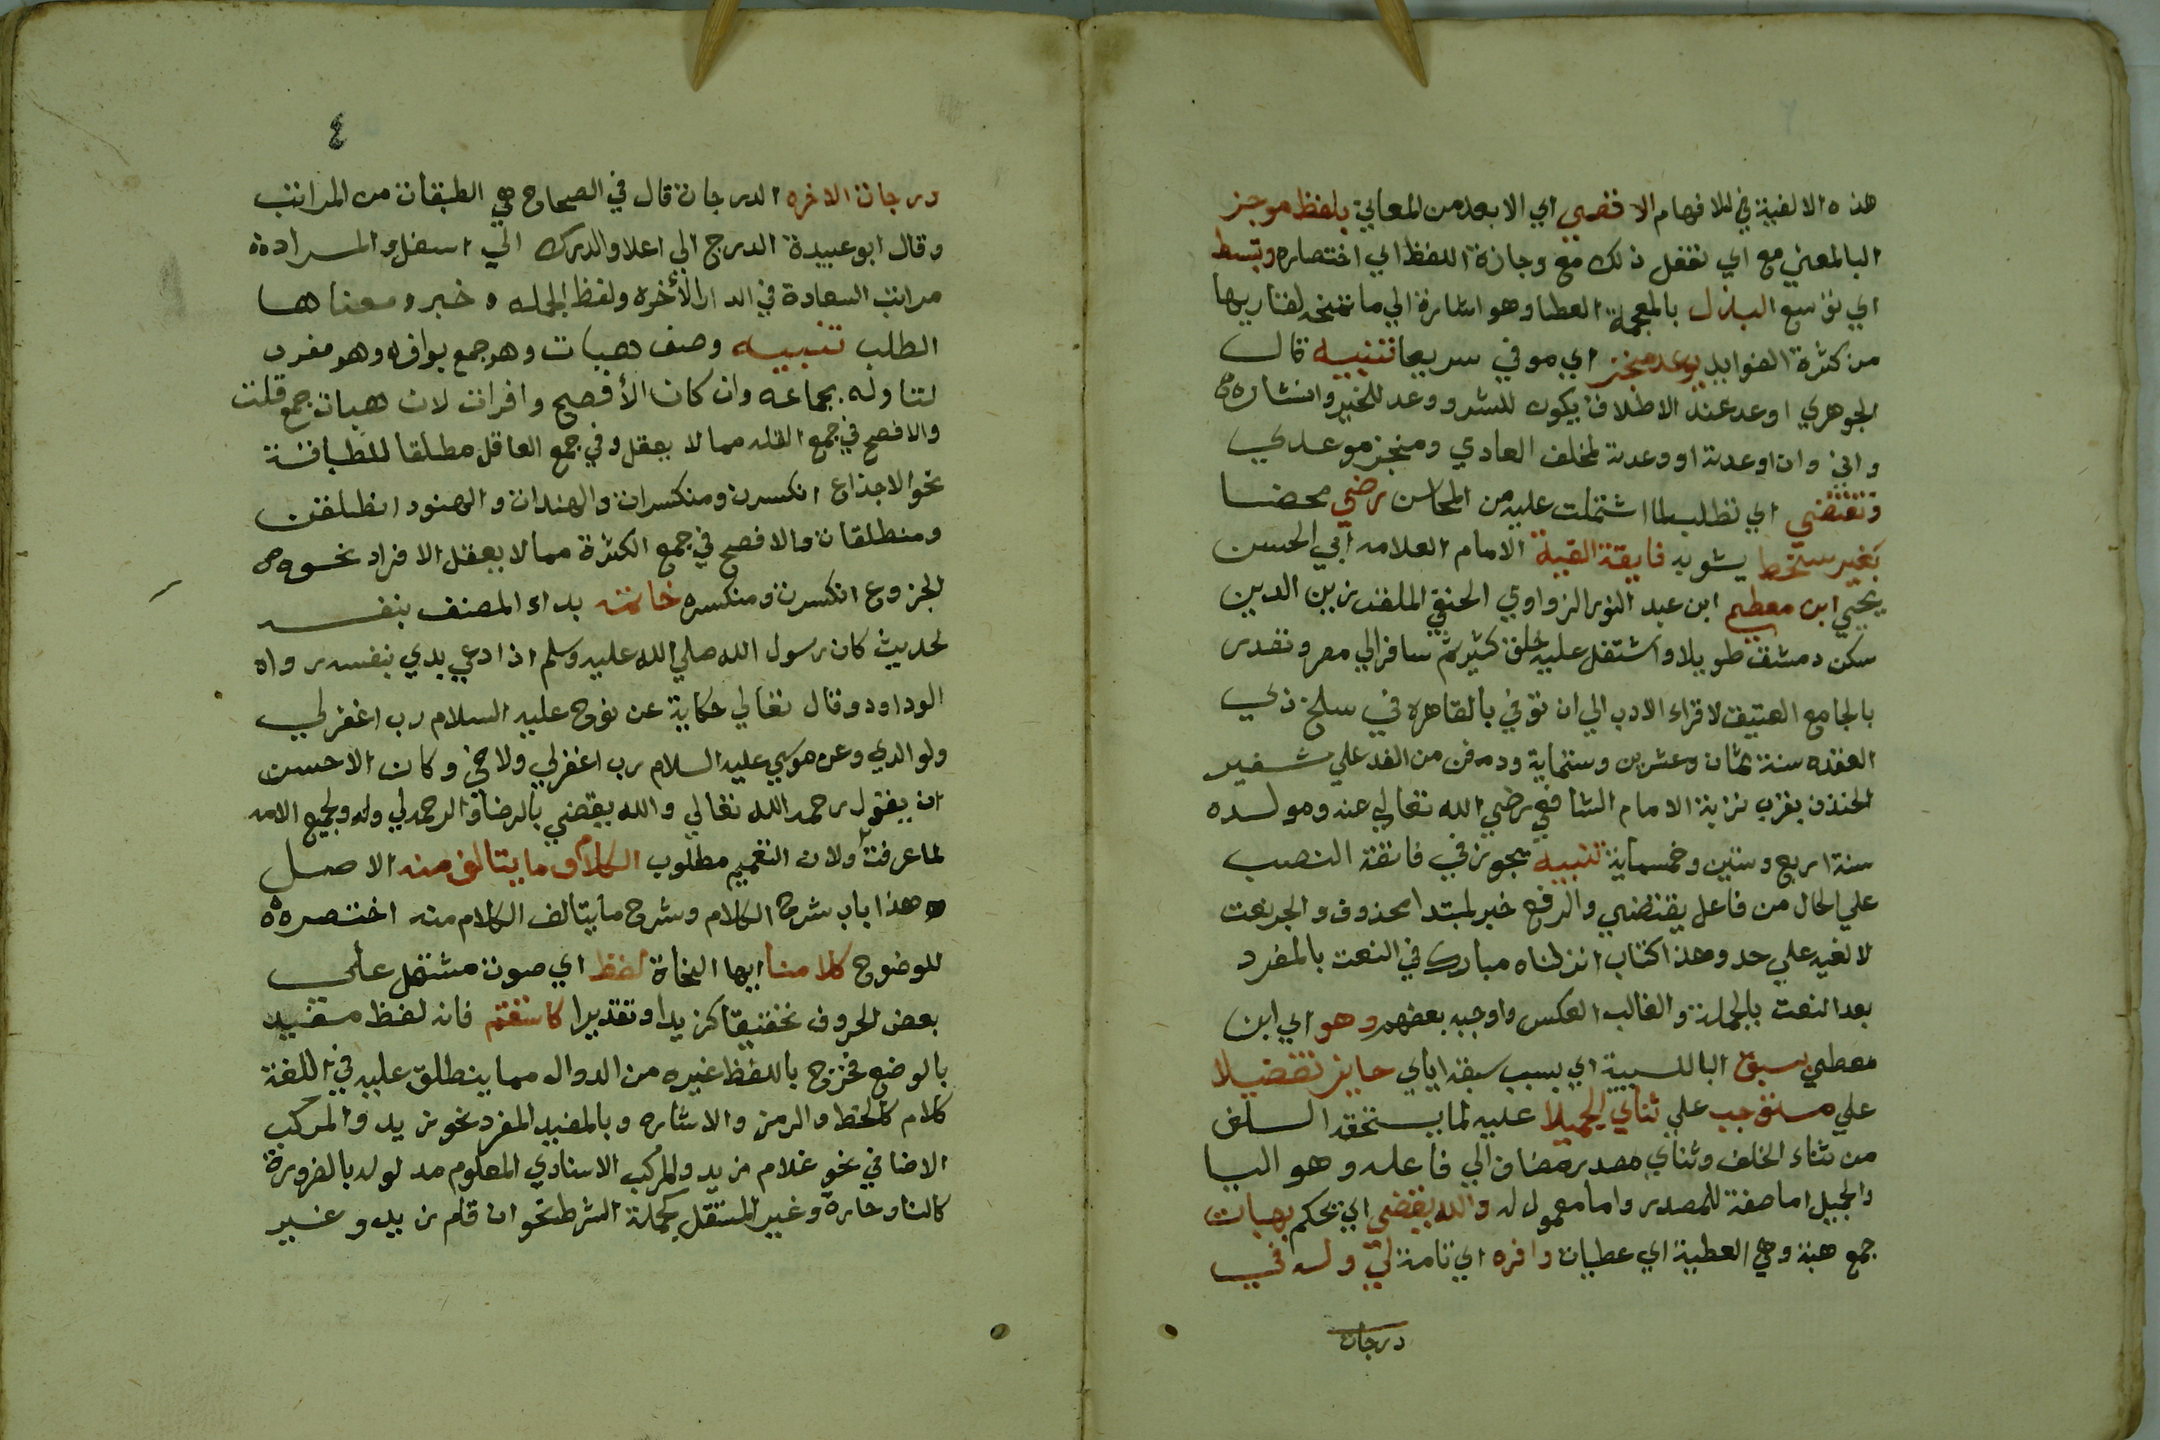 هذه الالفية في للافهام الاقصي اي الابعد من المعاني بلفظ موجز
البا لمعني مع اي تفعل ذلك مع وجازة اللفظ اي اختصاره وتبسط
اي توسع البذل بالمعجمة العطا وهو اشارة الي ما تمنحه لقاريها
من كثرة الفوايد بوعد منجز اي موفي سريعا تنبيه قال
الجوهري اوعد عند الاطلاق يكون للشر ووعد للخير وانشاده
واني وان اوعدته او وعدته لمخلف ايعادي ومنجز موعدي
وتقتضي اي تطلب لما اشتملت عليه من المحاسن رضي محضا
بغير سخط يشوبه فايقة الفية الامام العلامه ابي الحسن
يحيي ابن معطي ابن عبد النور الزواوي الحنفي الملقب زين الدين
سكن دمشق طويلا واشتغل عليه خلق كثير ثم سافر الي مصر وتصدر
بالجامع العتيق لاقراء الادب الي ان توفي بالقاهرة في سلخ ذي
القعده سنة ثمان وعشرين وستماية ودفن من الغد علي شفير
الخندق بقرب تربة الامام الشافعي رضي الله تعالي عنه ومولده
سنة اربع وستين وخمسماية تنبيه يجوز في فائقة النصب
علي الحال من فاعل يقتضي والرفع خبر لمبتدا محذوف والجر نعت
لالفيه علي حد وهذا كتاب انزلناه مبارك في النعت بالمفرد
بعد النعت بالجملة والغالب العكس واوجبه بعضهم وهو اي ابن
معطي بسبق البا للسببية اي بسبب سبقه اياي حايز تفضيلا
علي مستوجب علي ثنائي الجميلا عليه لما يستحقه السلف
من ثناء الخلف وثنائي مصدر مضاف الي فاعله وهو اليا
والجميل اما صفة للمصدر واما معمول له والله يقضي اي يحكم بهبات
جمع هبة وهي العطية اي عطيات وافره اي تامة لي وله في
درجات
٤
درجات الاخره الدرجات قال في الصحاح هي الطبقات من المراتب
وقال ابو عبيدة الدرج الي اعلا والدرك الي اسفل والمراد
مراتب السعادة في الدار الأخره ولفظ الجمله خبر ومعناها
الطلب تنبيه وصف هبات وهو جمع بوافره وهو مفرد
لتاوله بجماعه وان كان الأفصح وافرات لان هبات جمع قلت
والافصح في جمع القله مما لا يعقل وفي جمع العاقل مطلقا المطابقة
نحو الاجذاع انكسرن ومنكسرات والهندات والهنود انطلقن
ومنطلقات والافصح في جمع الكثرة مما لا يعقل الافراد نحو
الجزوع انكسرت ومنكسره خاتمه بداء المصنف بنفسه
لحديث كان رسول الله صلي الله عليه وسلم اذا دعي بدي بنفسه رواه
ابوداود وقال تعالي حكاية عن نوح عليه السلام رب اغفر لي
ولوالدي وعن موسي عليه السلام رب اغفر لي ولاخي وكان الاحسن
ان يقول رحمه الله تعالي والله يقضي بالرضا والرحمه لي وله ولجميع الامه
لما عرفت ولان التعميم مطلوب الكلام وما يتالف منه الاصل
هذا باب شرح الكلام وشرح ما يتالف الكلام منه اختصره
للوضوح كلامنا ايها النحاة لفظ اي صوت مشتمل على
بعض الحروف تحقيقا كزيد او تقديرا كاستقم فانه لفظ مفيد
بالوضع فخرج باللفظ غيره من الدوال مما ينطلق عليه في اللغة
كلام كالخط والرمز والاشاره وبالمفيد المفرد نحو زيد والمركب
الاضافي نحو غلام زيد والمركب الاسنادي المعلوم مدلوله بالضرورة
كالنار حارة وغير المستقل كجملة الشرط نحو ان قام زيد وغير